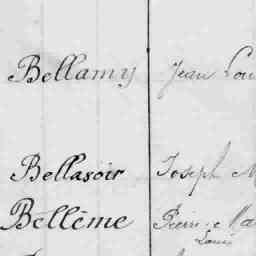 Bellamy Jean Lou
Bellasoir Joseph M
Bellême Pierre Ma
Louis